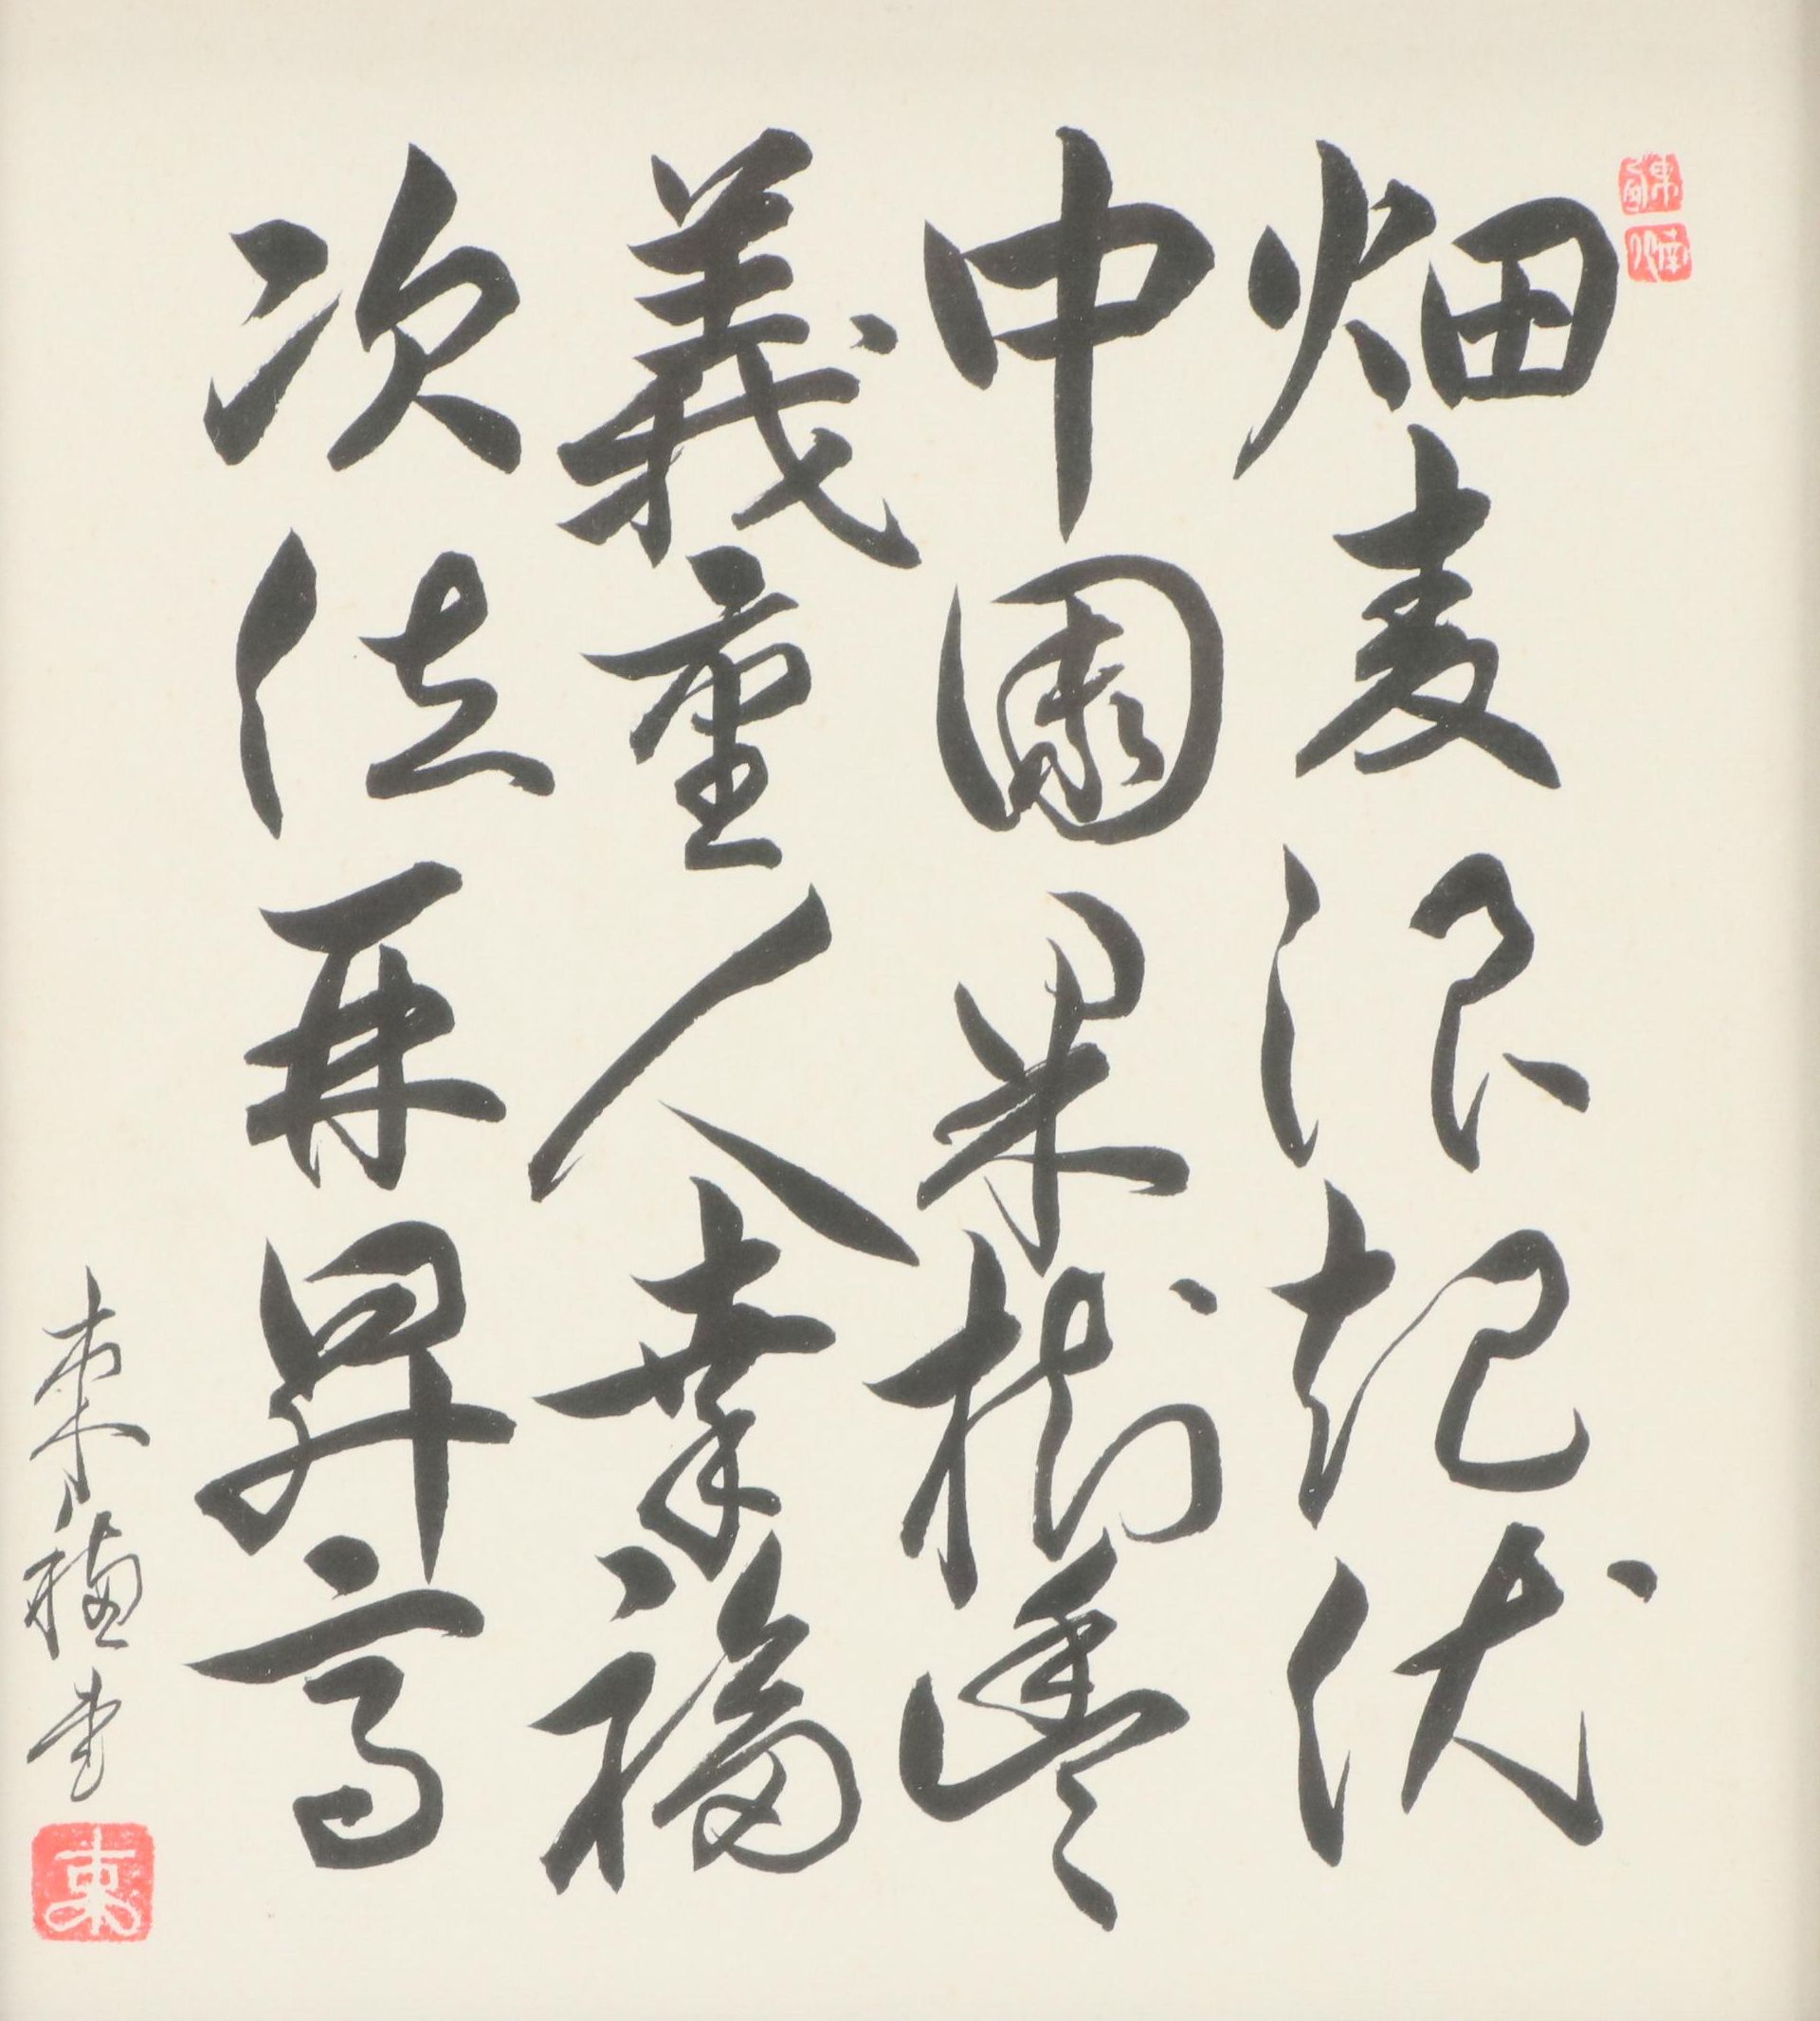 畑麦浪起伏
中園果樹豊
義重人業福
次位再昇高
東穂書
東